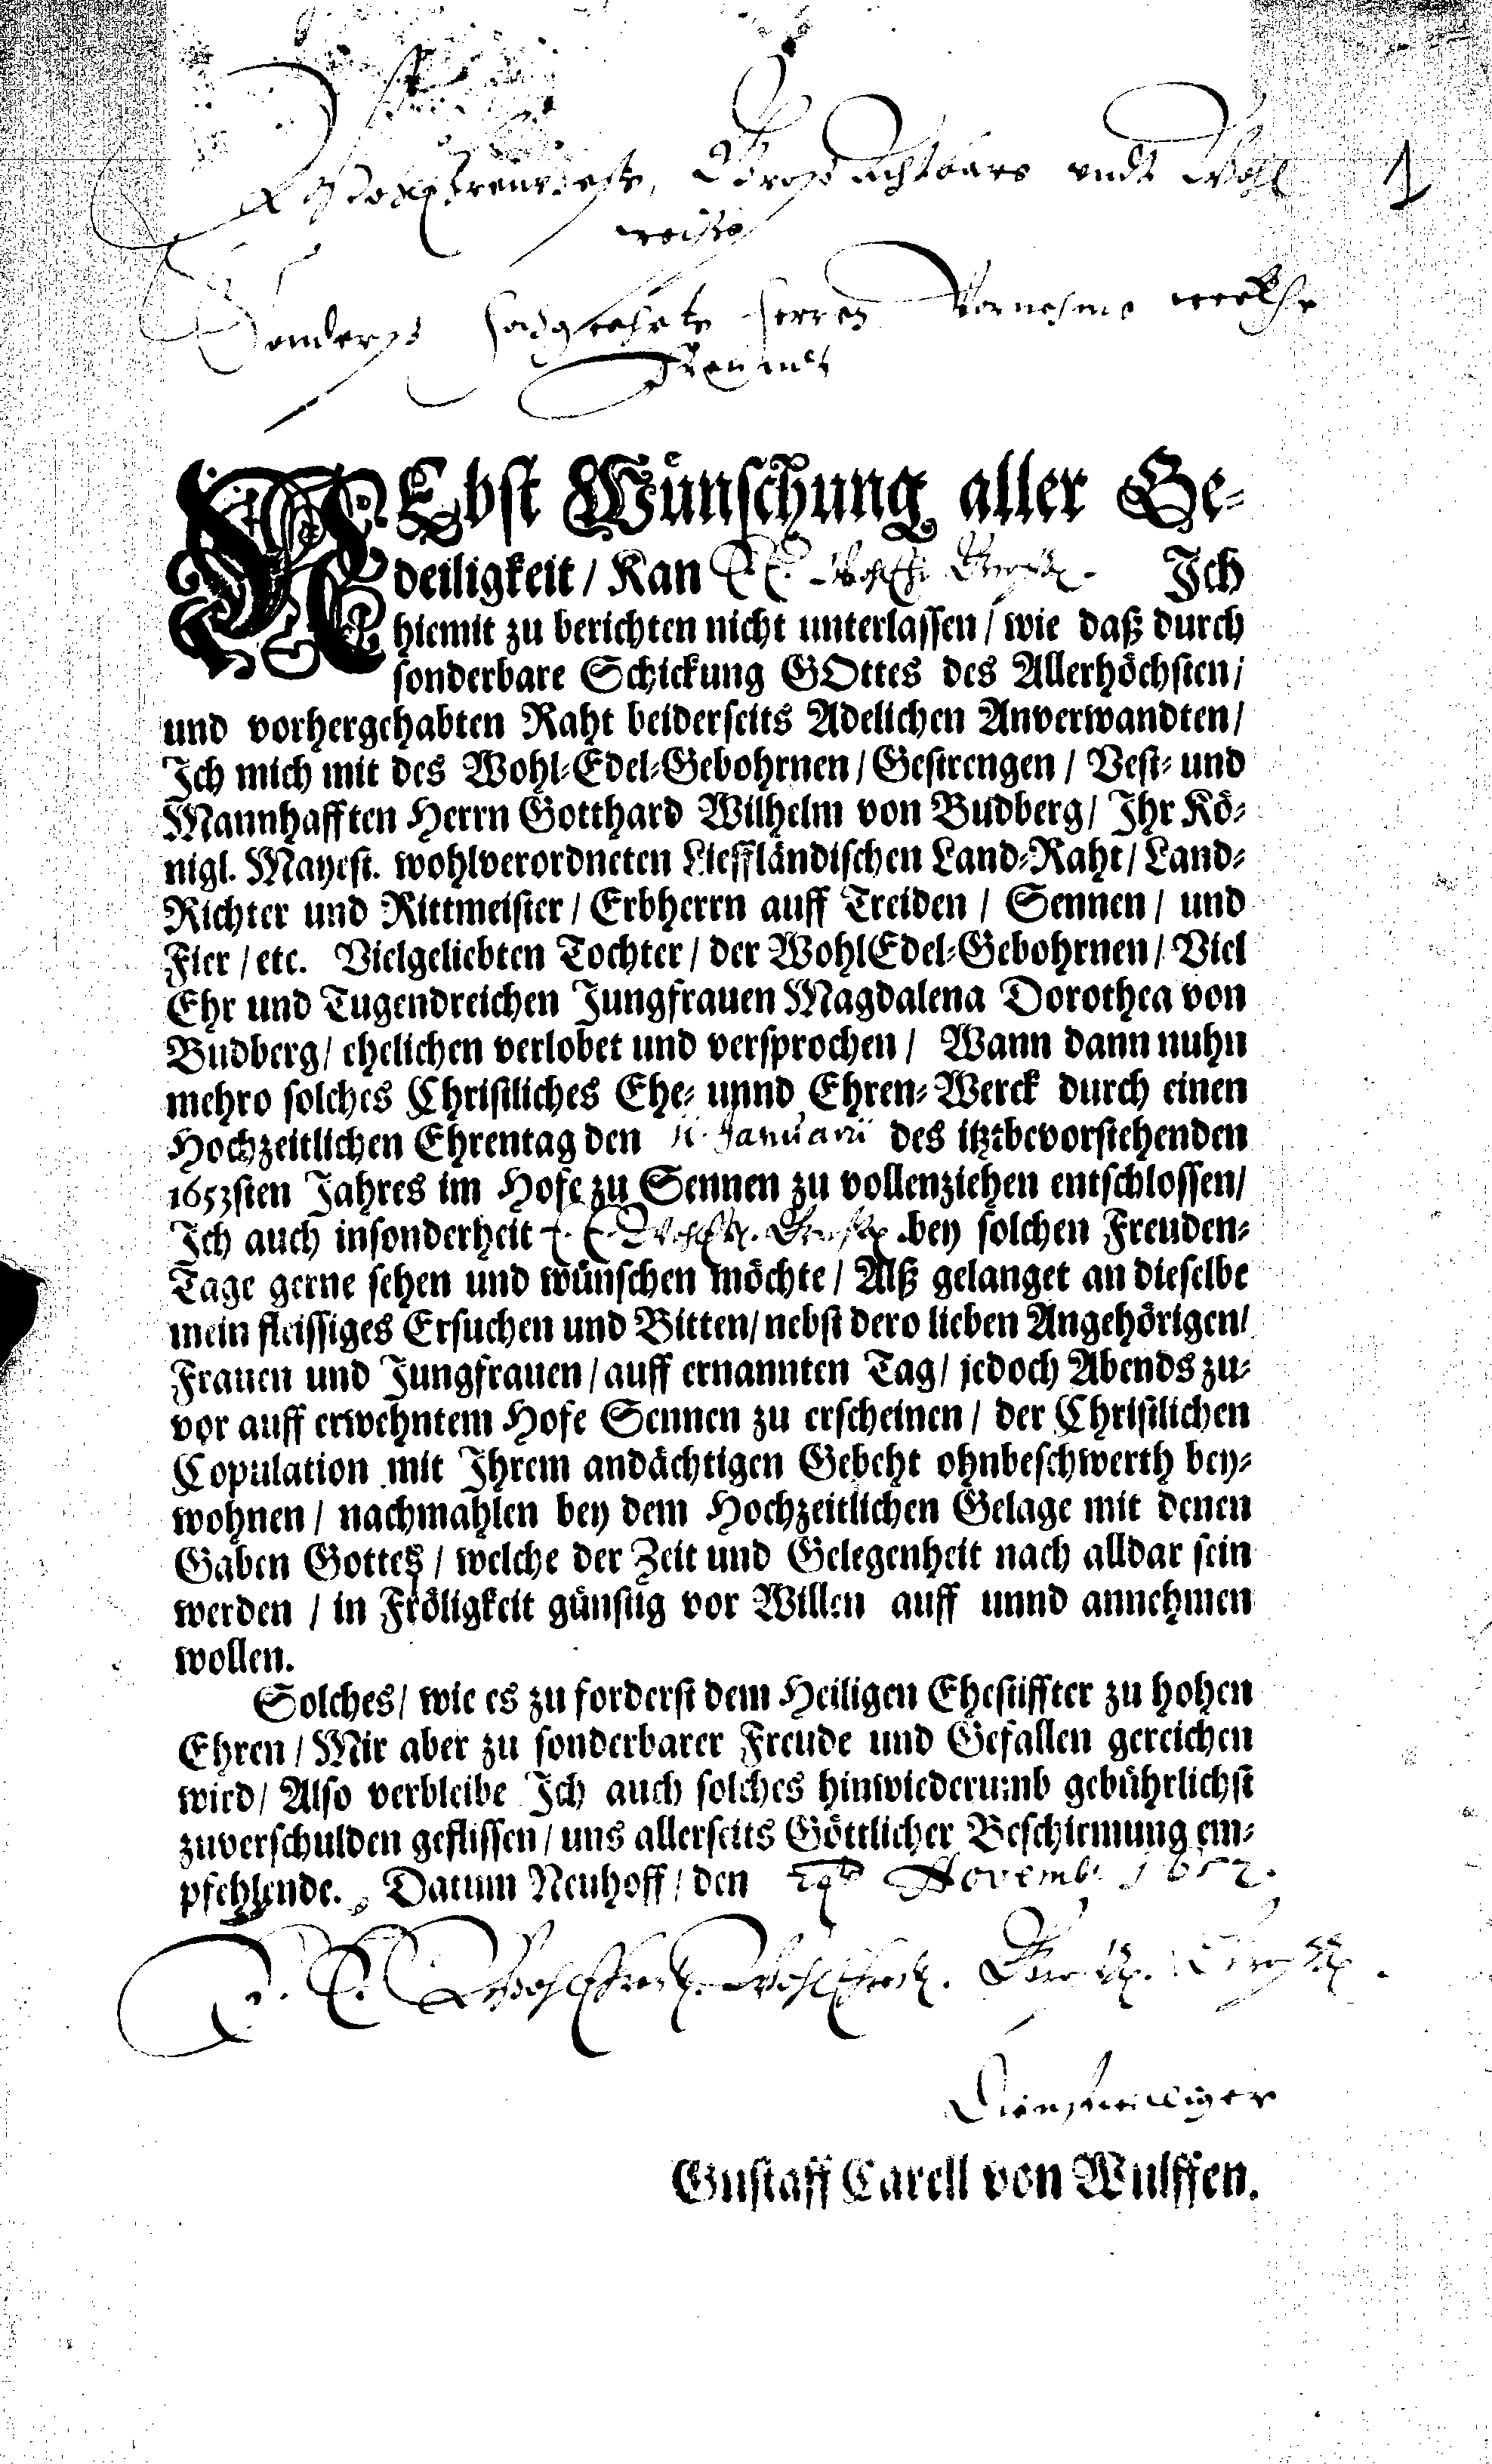 Großachtbare undt Wohl
weise
Sonders hochgeehrte Herren Vornehme werthe
Freunde
1
NEbst Wünschung aller Ge-
deiligkeit / Kan E. E. Ich
hiemit zu berichten nicht unterlassen / wie daß durch
sonderbare Schickung GOttes des Allerhöchsten /
und vorhergehabten Raht beiderseits Adelichen Anverwandten /
Ich mich mit des Wohl-Edel-Gebohrnen / Gestrengen / Vest- und
Mannhafften Herrn Gotthard Wilhelm von Budberg / Ihr Kö-
nigl. Mayest. wohlverordneten Liefländischen Land-Raht / Land-
Richter und Rittmeister / Erbherrn auff Treiden / Sennen / und
Fier / etc. Vielgeliebten Tochter / der WohlEdel-Gebohrnen / Viel
Ehr und Tugendreichen Jungfrauen Magdalena Dorothea von
Budberg / ehelichen verlobet und versprochen / Wann dann nuhn
mehro solches Christliches Ehe- unnd Ehren-Werck durch einen
Hochzeitlichen Ehrentag den 11. Januarii des itztbevorstehenden
1653sten Jahres im Hofe zu Sennen zu vollenziehen entschlossen /
Ich auch insonderheit E. E. bey solchen Freuden-
Tage gerne sehen und wünschen möchte / Alß gelanget an dieselbe
mein fleissiges Ersuchen und Bitten / nebst dero lieben Angehörigen /
Frauen und Jungfrauen / auff ernannten Tag / jedoch Abends zu-
vor auff erwehntem Hofe Sennen zu erscheinen / der Christlichen
Copulation mit Ihrem andächtigen Gebeht ohnbeschwerth bey-
wohnen / nachmahlen bey dem Hochzeitlichen Gelage mit denen
Gaben Gottes / welche der Zeit und Gelegenheit nach alldar sein
werden / in Fröligkeit günstig vor Willen auff unnd annehmen
wollen.
Solches / wie es zu forderst dem Heiligen Ehestiffter zu hohen
Ehren / Mir aber zu sonderbarer Freude und Gefallen gereichen
wird / Also verbleibe Ich auch solches hinwiederumb gebührlichst
zuverschulden geflissen / uns allerseits Göttlicher Beschirmung em-
pfehlende. Datum Neuhoff / den 29 Novemb. 1652.
E.
Dienstwilliger
Gustaff Carell von Wulffen.